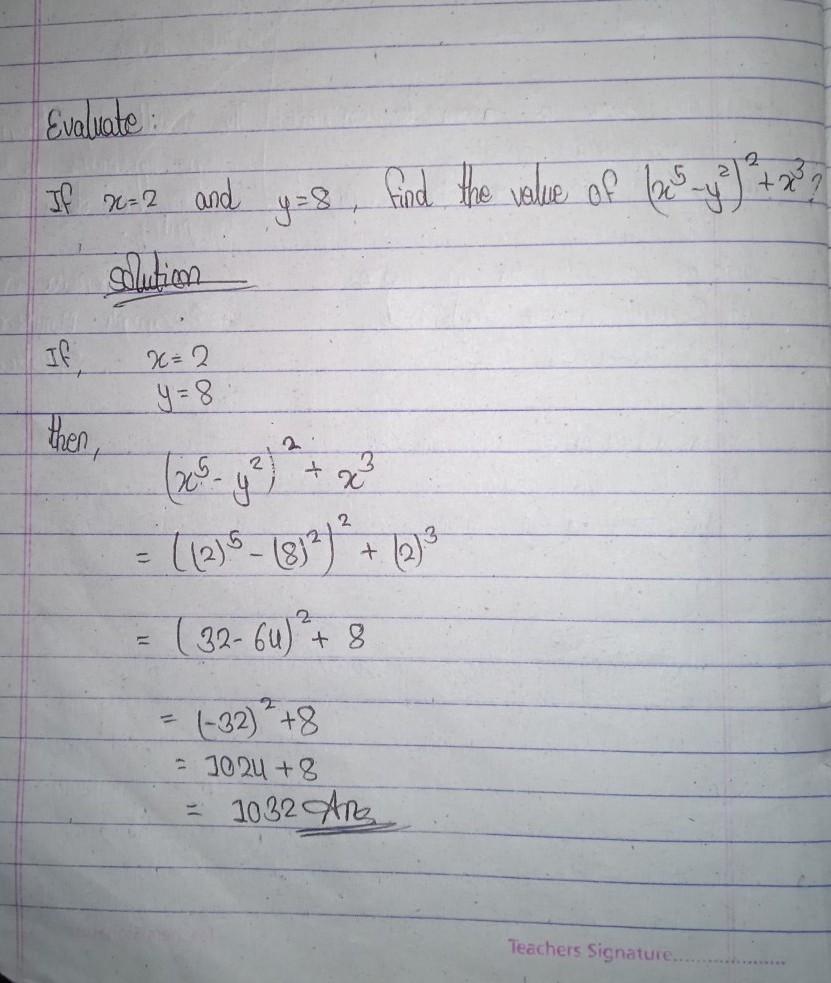 Evaluate:
If x=2 and y=8, find the value of (x⁵-y²)²+x³?
solution
If, x=2
y=8
then,
(x⁵-y²)²+x³
= ((2)⁵-(8)²)²+(2)³
= (32-64)²+8
= (-32)²+8
= 1024+8
= 1032 Ans
Teachers Signature....................